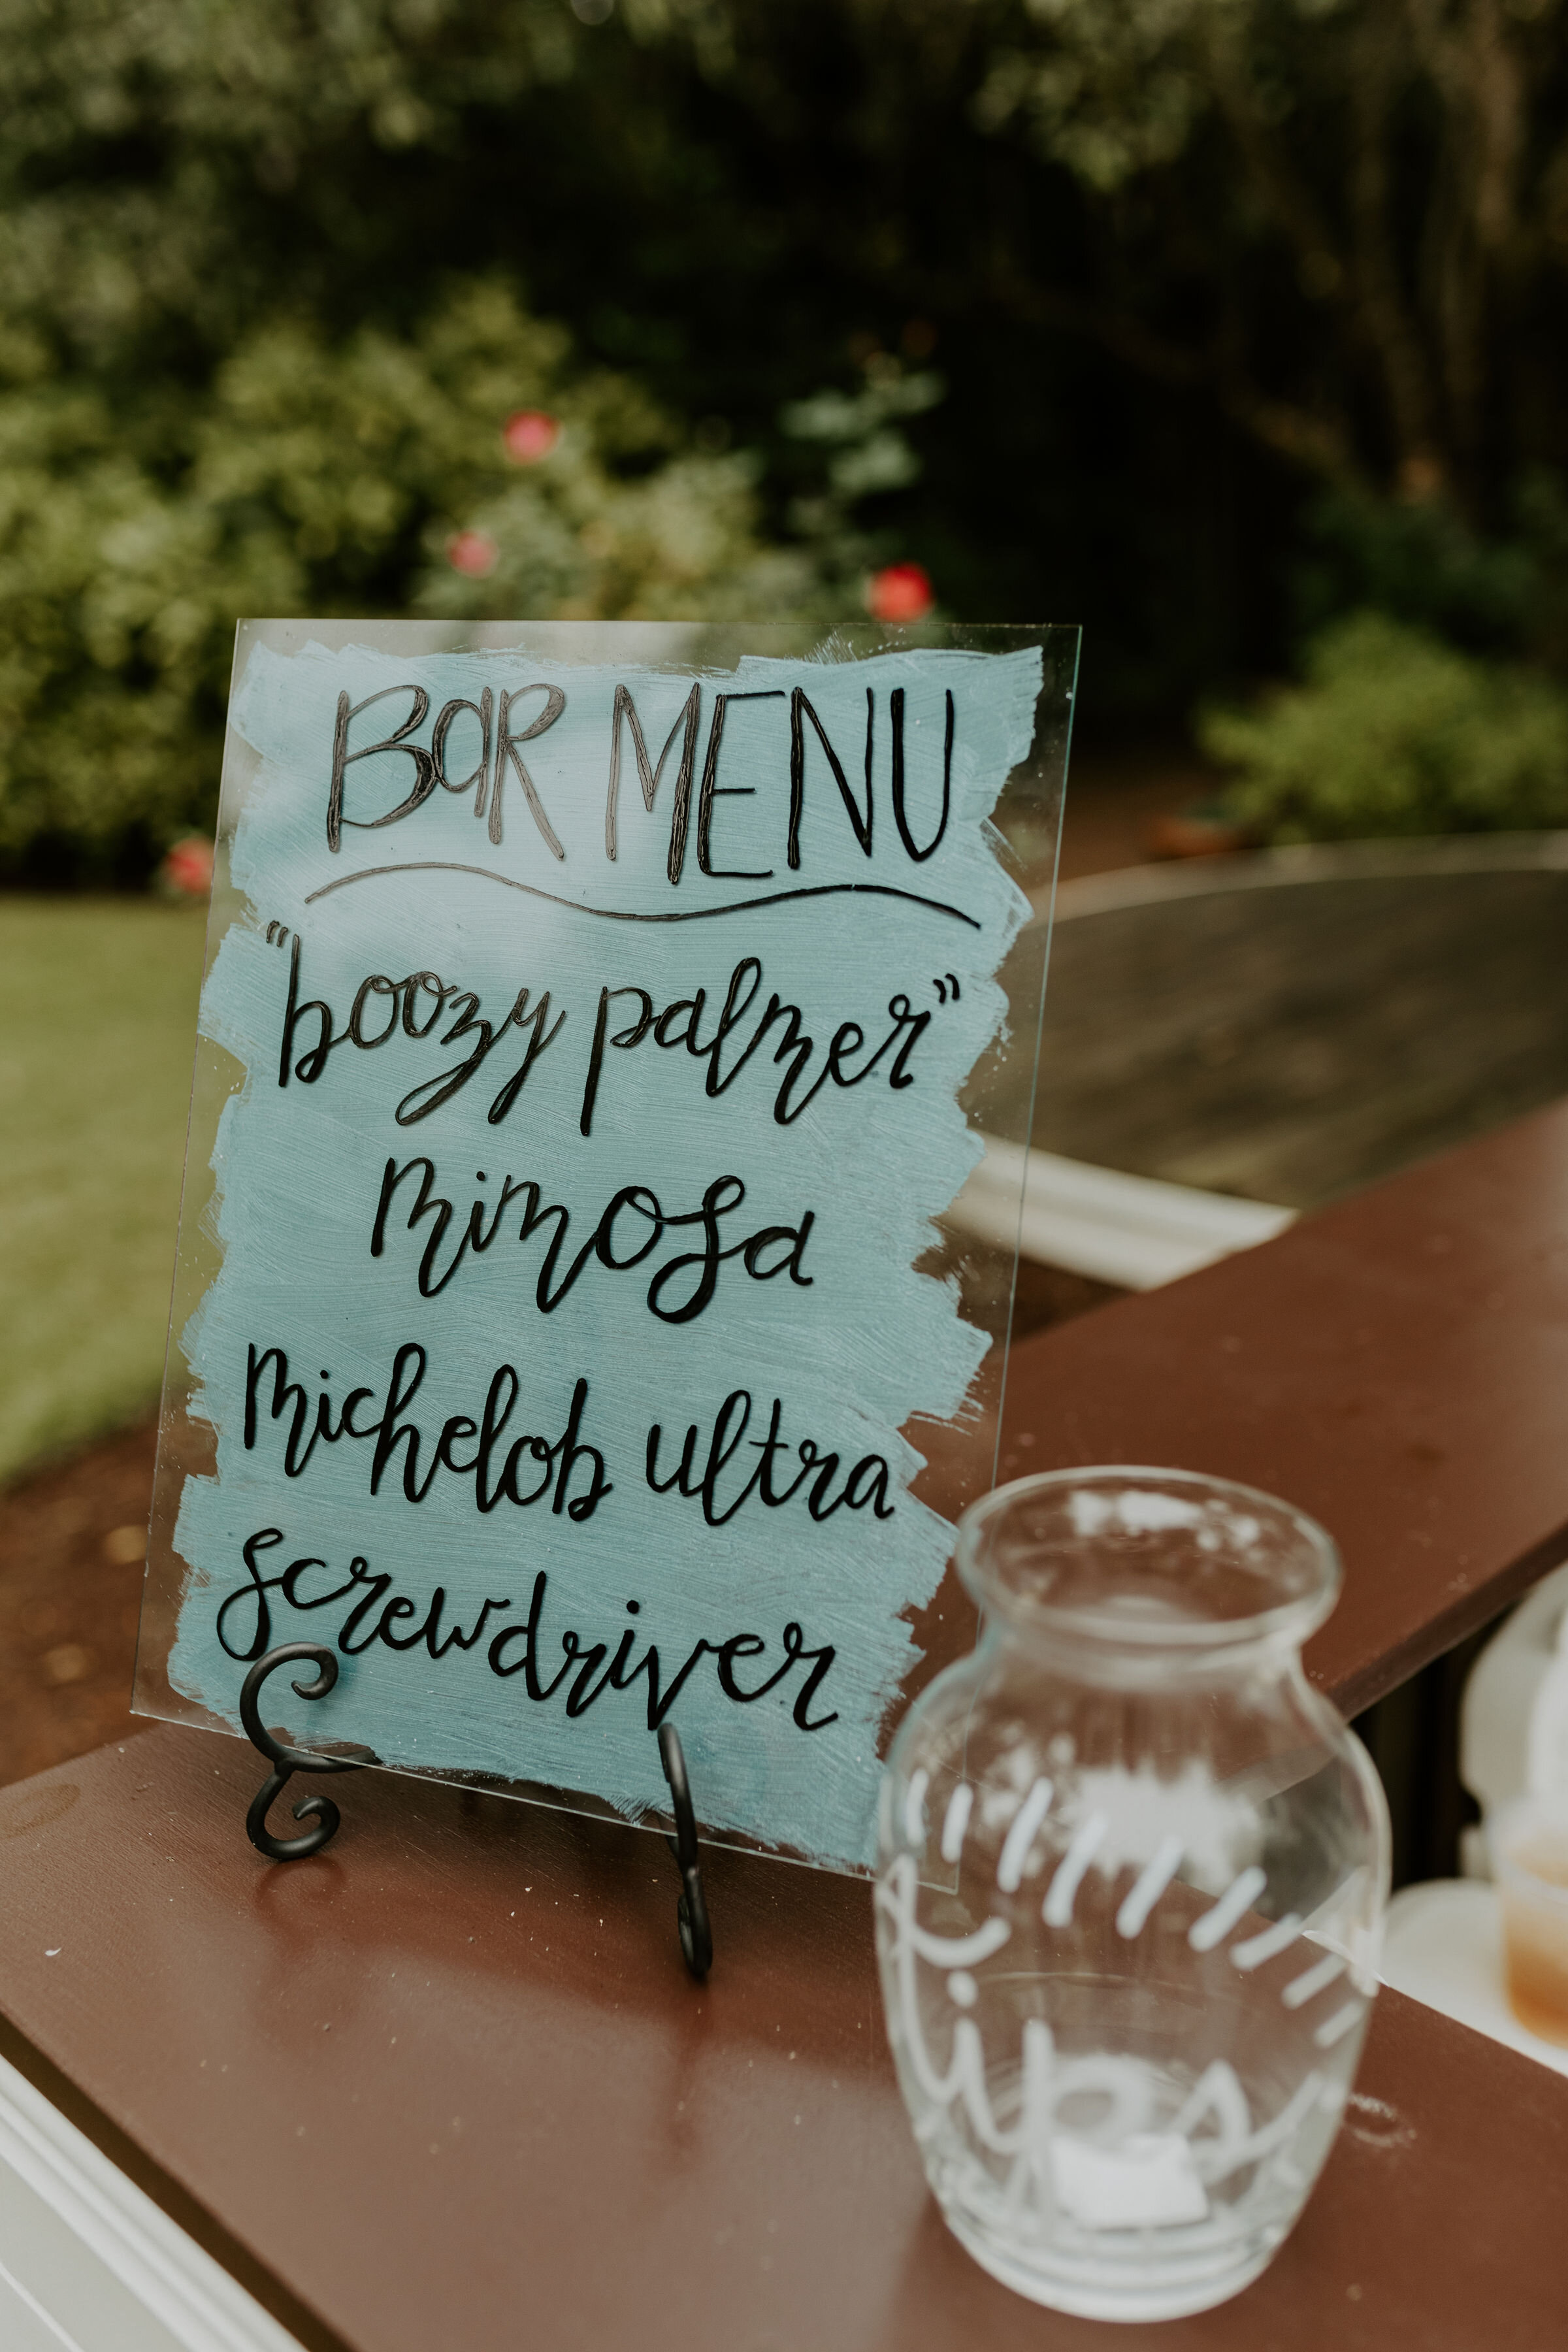 BaR MENU
"boozy palmer"
mimosa
michelob ultra
screwdriver
tips